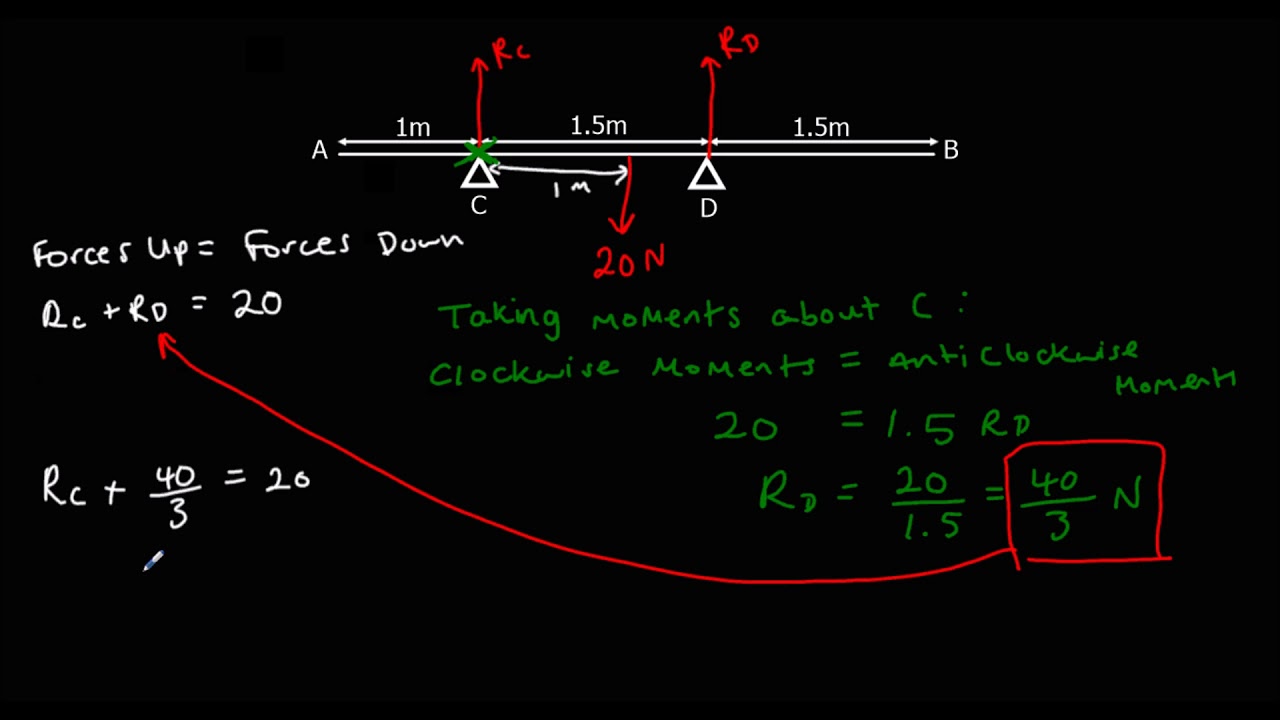 Rc
RD
1m
1.5m
1.5m
A
B
1m
C
D
20N
Forces Up = Forces Down
Rc + RD = 20
Taking moments about C :
Clockwise Moments = Anticlockwise
Moments
20 = 1.5 RD
Rc + 40/3 = 20
RD = 20/1.5 = 40/3 N